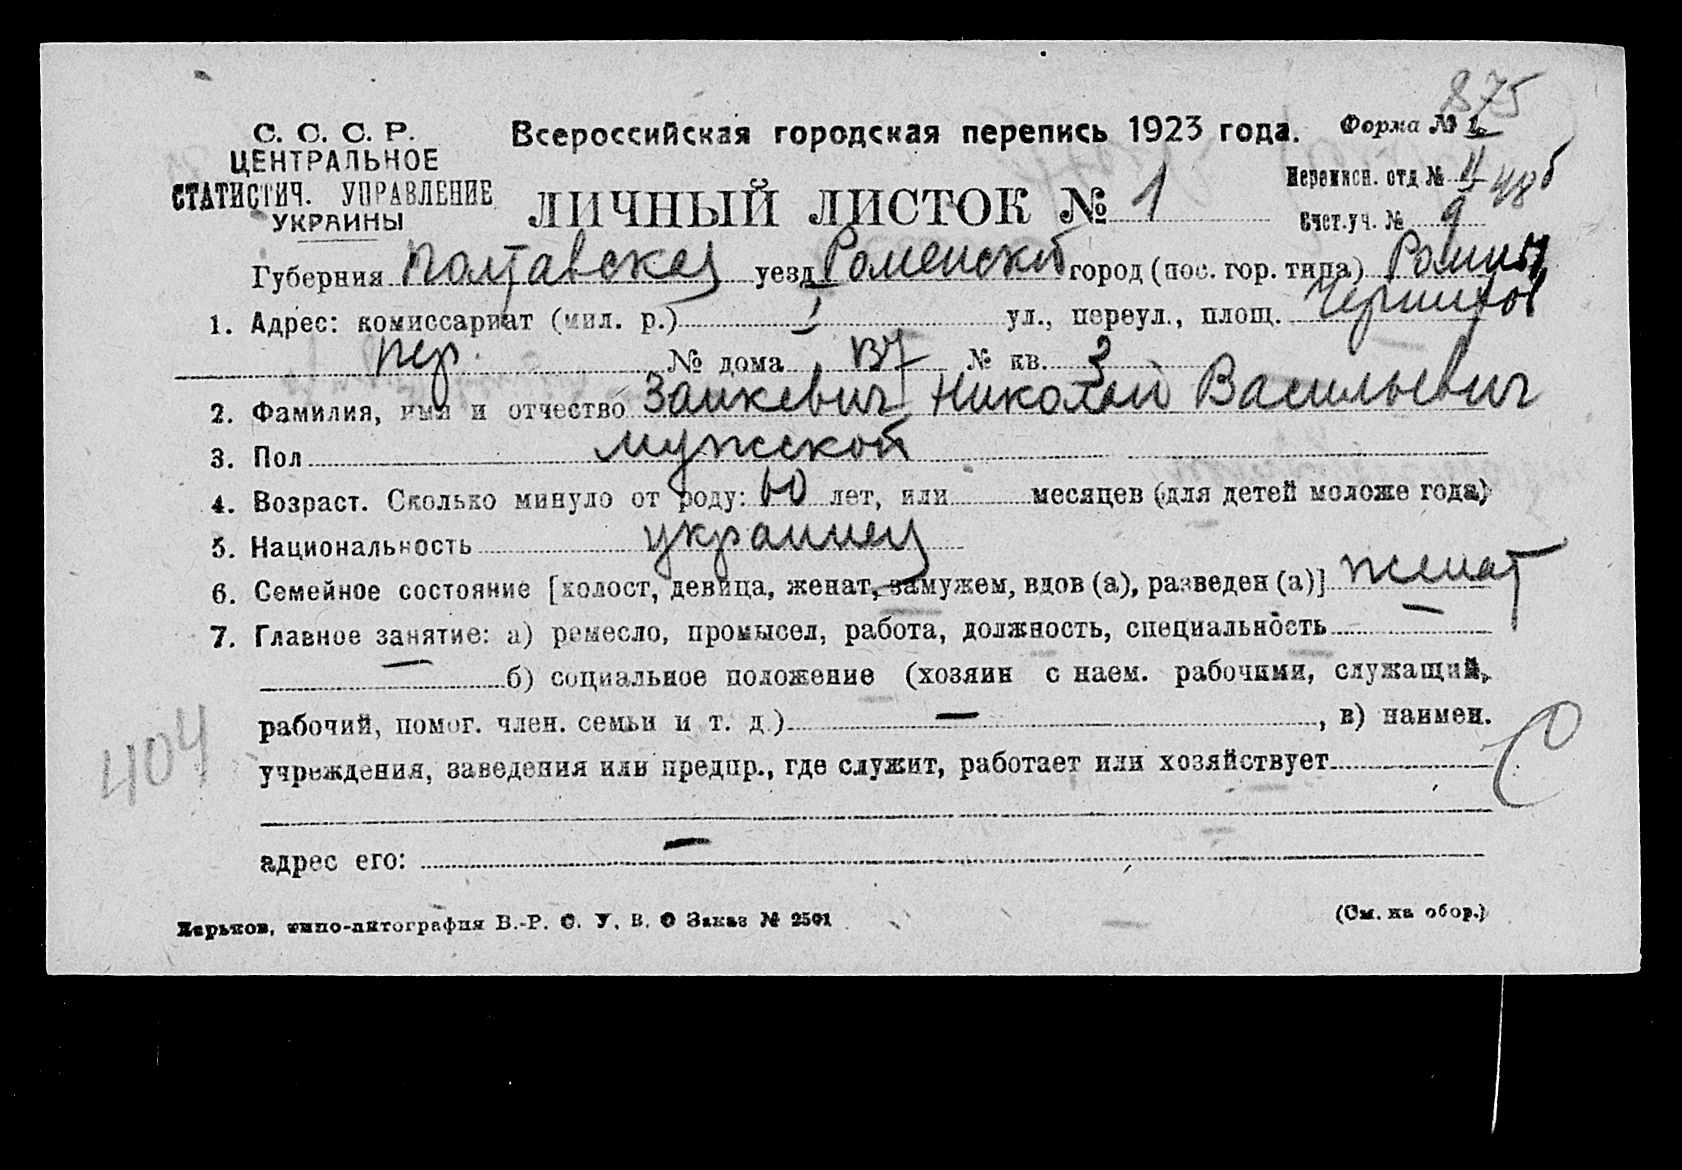 875
С. С. С. Р.
ЦЕНТРАЛЬНОЕ
СТАТИСТИЧ. УПРАВЛЕНИЕ
УКРАИНЫ
Всероссийская городская перепись 1923 года.
Форма № 1.
ЛИЧНЫЙ ЛИСТОК № 1
Переписн. отд № II 486
Счет.уч. № 9
Губерния Полтавская уезд Роменский город (пос. гор. типа) Ромны
1. Адрес: комиссариат (мил. р.) I ул., переул., площ.
пер. № дома № кв. 3
2. Фамилия, имя и отчество Заикевич Николай Васильевич
3. Пол мужской
4. Возраст. Сколько минуло от роду: 60 лет, или месяцев (для детей моложе года)
5. Национальность украинец
6. Семейное состояние [холост, девица, женат, замужем, вдов (а), разведен (а)] женат
7. Главное занятие: а) ремесло, промысел, работа, должность, специальность —
— б) социальное положение (хозяин с наем. рабочими, служащий,
рабочий, помог. член. семьи и т. д.) — , в) наимен.
учреждения, заведения или предпр., где служит, работает или хозяйствует
адрес его: —
404
Харьков, типо-литография В.-Р. С. У. В. О Заказ № 2501
(См. на обор.)